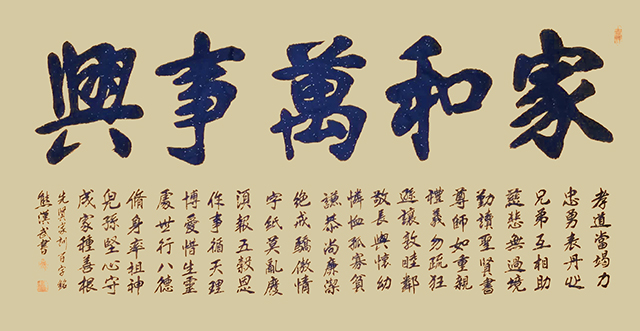 家和萬事興
孝道當竭力
忠勇表丹心
兄弟互相助
慈悲無過境
勤讀聖賢書
尊師如重親
禮義勿疏狂
遜讓敦睦鄰
敬長與懷幼
憐恤孤寡貧
謙恭尚廉潔
絕戒驕傲情
字紙莫亂廢
須報五穀恩
作事循天理
博愛惜生靈
處世行八德
脩身率祖神
兒孫堅心守
成家種善根
先賢家訓百字銘
熊漢武書